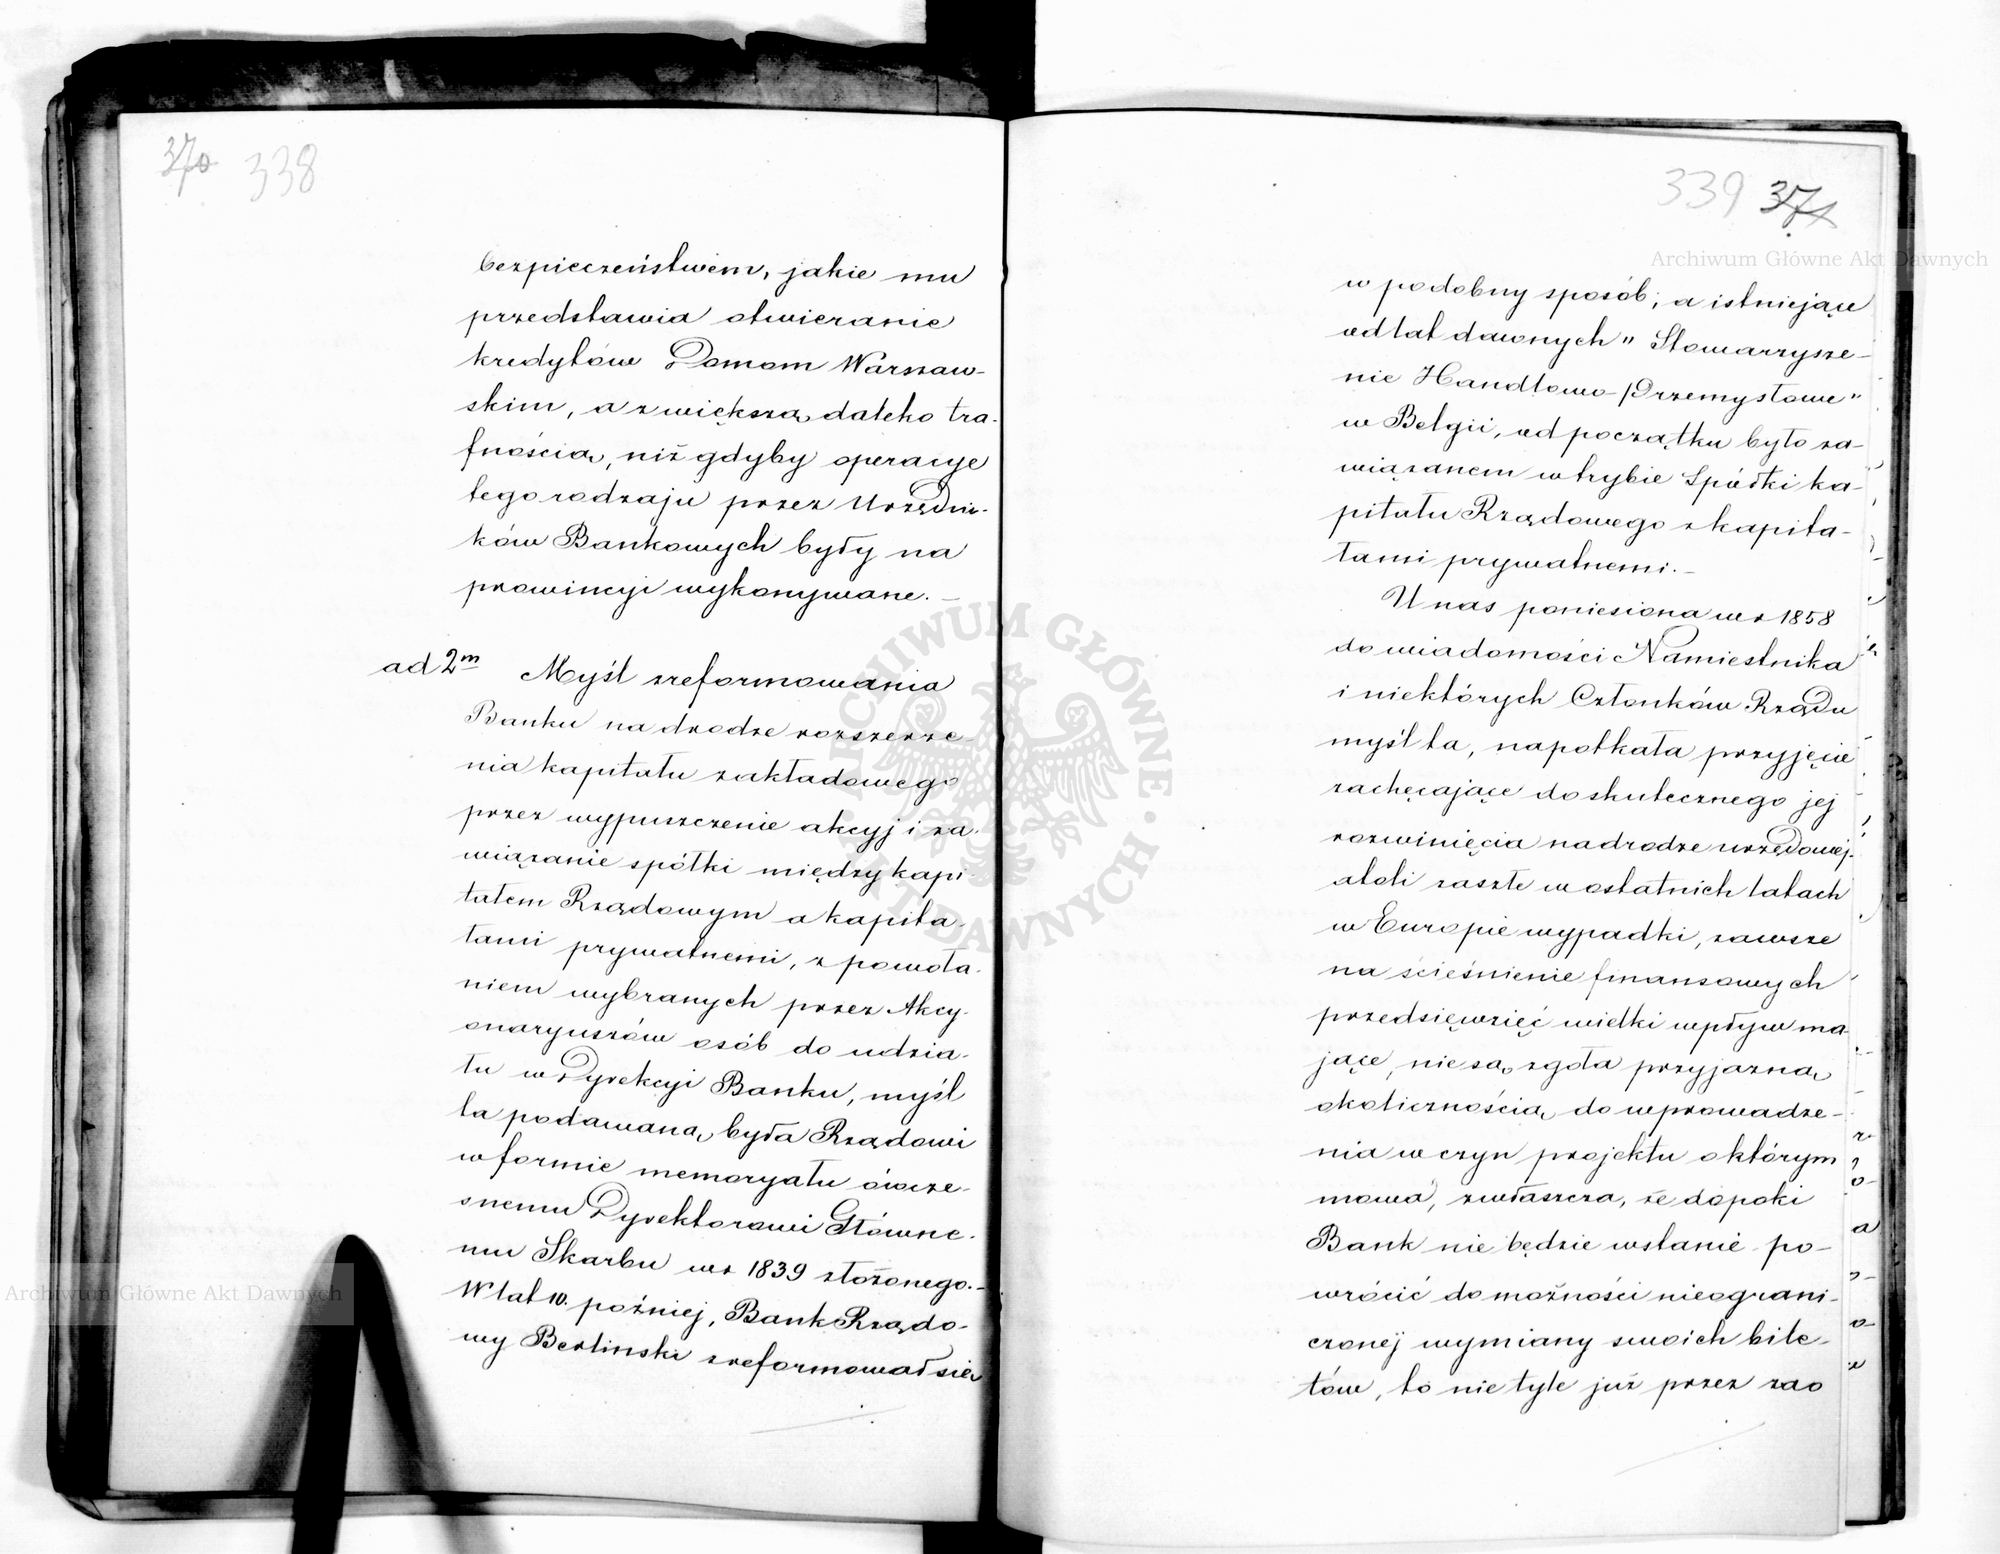 370 338
bezpieczeństwem, jakie mu
przedstawia otwieranie
kredytów Domom Warszaw-
skim, a z większą daleko tra-
fnością, niż gdyby operacye
tego rodzaju przez Urzędni-
ków Bankowych były na
prowincyi wykonywane.—
ad 2m Myśl zreformowania
Banku na drodze rozszerze-
nia kapitału zakładowego
przez wypuszczenie akcyj i za-
wiązanie spółki między kapi-
tałem Rządowym a kapita-
łami prywatnemi, z powoła-
niem wybranych przez Akcy-
onaryuszów osób do udzia-
łu w Dyrekcyi Banku, myśl
ta podawaną była Rządowi
w formie memoryału ówcze-
snemu Dyrektorowi Główne-
mu Skarbu w r 1839 złożonego.—
W lat 10. później, Bank Rządo-
wy Berliński zreformował się
339 371
w podobny sposób; a istniejące
od lat dawnych "Stowarzysze-
nie Handlowo-Przemysłowe"
w Belgii, od początku było za-
wiązanem w trybie Spółki ka-
pitału Rządowego z kapita-
łami prywatnemi.—
U nas poniesiona w r 1858
do wiadomości Namiestnika
i niektórych Członków Rządu
myśl ta, napotkała przyjęcie
zachęcające do skutecznego jej
rozwinięcia na drodze urzędowej.
atoli zaszłe w ostatnich latach
w Europie wypadki, zawsze
na ścieśnienie finansowych
przedsięwzięć wielki wpływ ma-
jące, nie są zgoła przyjazną
okolicznością do wprowadze-
nia w czyn projektu o którym
mowa, zwłaszcza, że dopóki
Bank nie będzie wstanie po-
wrócić do możności nieograni-
czonej wymiany swoich bile-
tów, to nie tyle już przez zao
Archiwum Główne Akt Dawnych
Archiwum Główne Akt Dawnych
ARCHIWUM GŁÓWNE AKT DAWNYCH